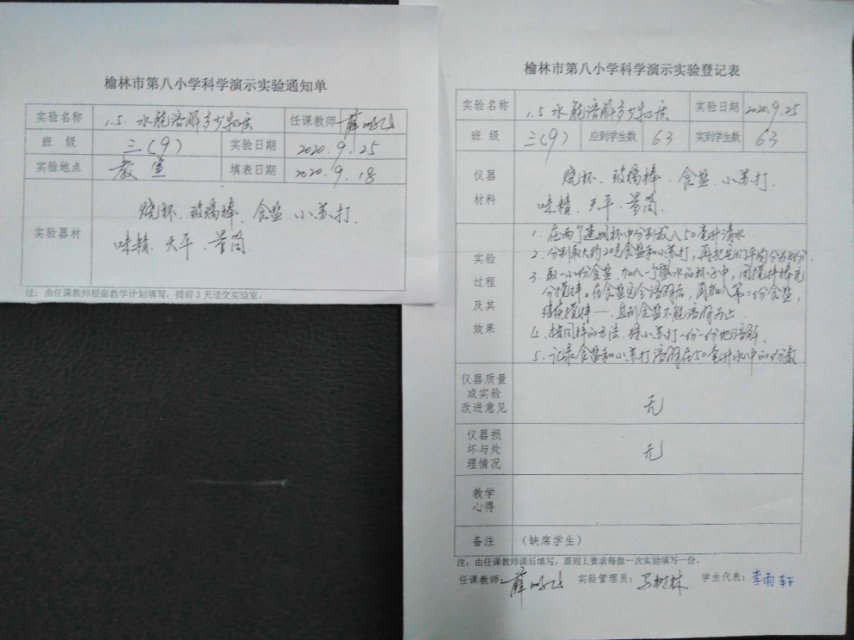 榆林市第八小学科学演示实验通知单
实验名称 1.5 水能溶解多少物质 任课教师 薛
班 级 三(9) 实验日期 2020.9.25
实验地点 教室 填表日期 2020.9.18
实验器材 烧杯、玻璃棒、食盐、小苏打、
味精、天平、量筒
注：由任课教师根据教学计划填写，提前3天送交实验室。
榆林市第八小学科学演示实验登记表
实验名称 1.5 水能溶解多少物质 实验日期 2020.9.25
班 级 三(9) 应到学生数 63 实到学生数 63
仪器
材料
烧杯、玻璃棒、食盐、小苏打、
味精、天平、量筒
实验
过程
及其
效果
1. 在两个透明杯中分别放入50毫升清水
2. 分别取大约20克食盐和小苏打，再把它们平均分成8份
3. 取一小份食盐，加入一个盛水的杯子中，用搅拌棒充
分搅拌。在食盐完全溶解后，再加入第二份食盐，
继续搅拌……直到食盐不能溶解为止
4. 按同样的方法，将小苏打一份一份地溶解
5. 记录食盐和小苏打溶解在50毫升水中的份数
仪器质量
或实验
改进意见
无
仪器损
坏与处
理情况
无
教学
心得
备注 （缺席学生）
注：由任课教师课后填写，原则上要求每做一次实验填写一份。
任课教师：薛 实验管理员： 树林 学生代表：李雨轩